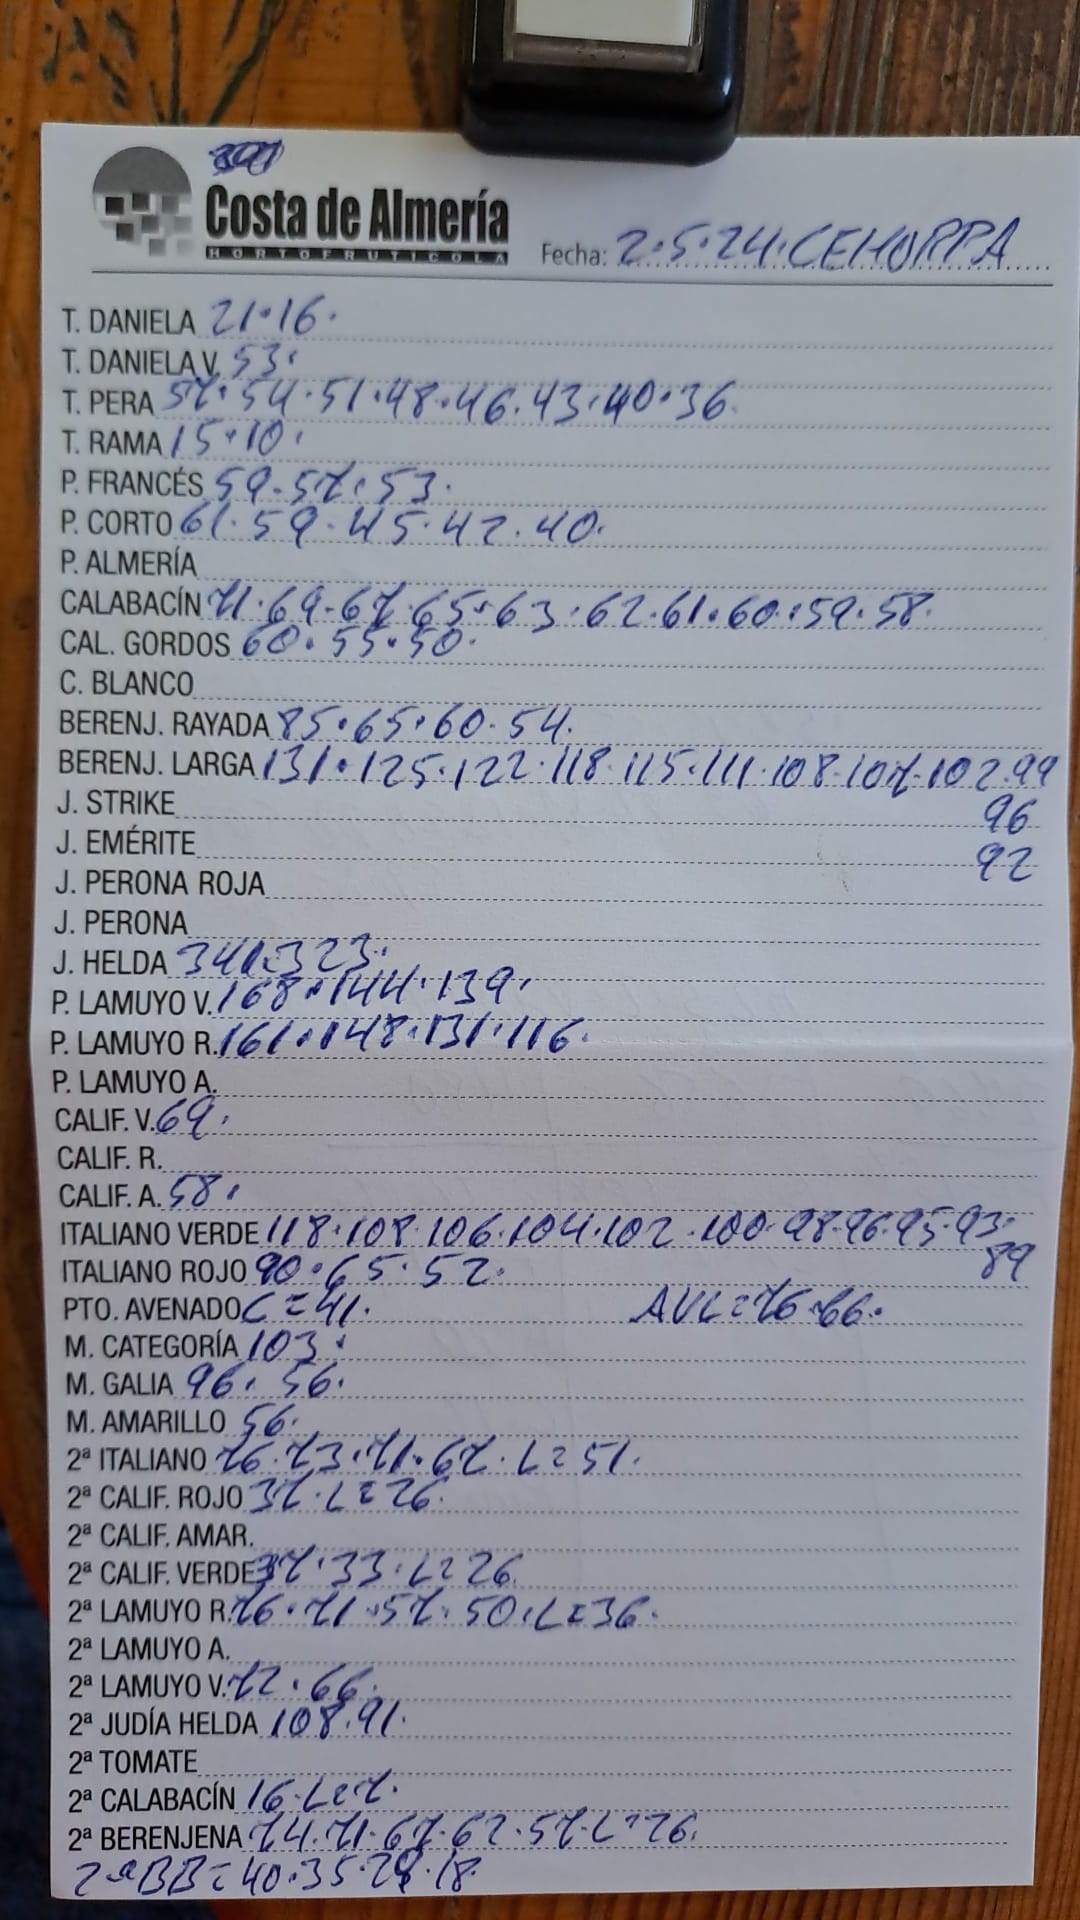 Costa de Almería
HORTOFRUTICOLA
Fecha: 2.5.24.CEHORPA
T. DANIELA 21.16.
T. DANIELA V. 53.
T. PERA 57.54.51.48.46.43.40.36.
T. RAMA 15.10.
P. FRANCÉS 59.57.53.
P. CORTO 61.59.45.42.40.
P. ALMERÍA
CALABACÍN 71.69.67.65.63.62.61.60.59.58.
CAL. GORDOS 60.55.50.
C. BLANCO
BERENJ. RAYADA 85.65.60.54.
BERENJ. LARGA 131.125.122.118.115.111.108.107.102.99
J. STRIKE 96
J. EMÉRITE 92
J. PERONA ROJA
J. PERONA
J. HELDA 341.323.
P. LAMUYO V. 168.144.139.
P. LAMUYO R. 161.148.131.116.
P. LAMUYO A.
CALIF. V. 69.
CALIF. R.
CALIF. A. 58.
ITALIANO VERDE 118.108.106.104.102.100.98.96.95.93.
ITALIANO ROJO 90.65.52. 89
PTO. AVENADO C=41. AVL=76.66.
M. CATEGORÍA 103.
M. GALIA 96.56.
M. AMARILLO 56.
2ª ITALIANO 76.73.71.67.L=51.
2ª CALIF. ROJO 37.L=26.
2ª CALIF. AMAR.
2ª CALIF. VERDE 37.33.L=26.
2ª LAMUYO R. 76.71.57.50.L=36.
2ª LAMUYO A.
2ª LAMUYO V. 72.66.
2ª JUDÍA HELDA 108.91.
2ª TOMATE
2ª CALABACÍN 16.L=7.
2ª BERENJENA 74.71.67.62.57.L=26.
2ªBB=40.35.29.18.